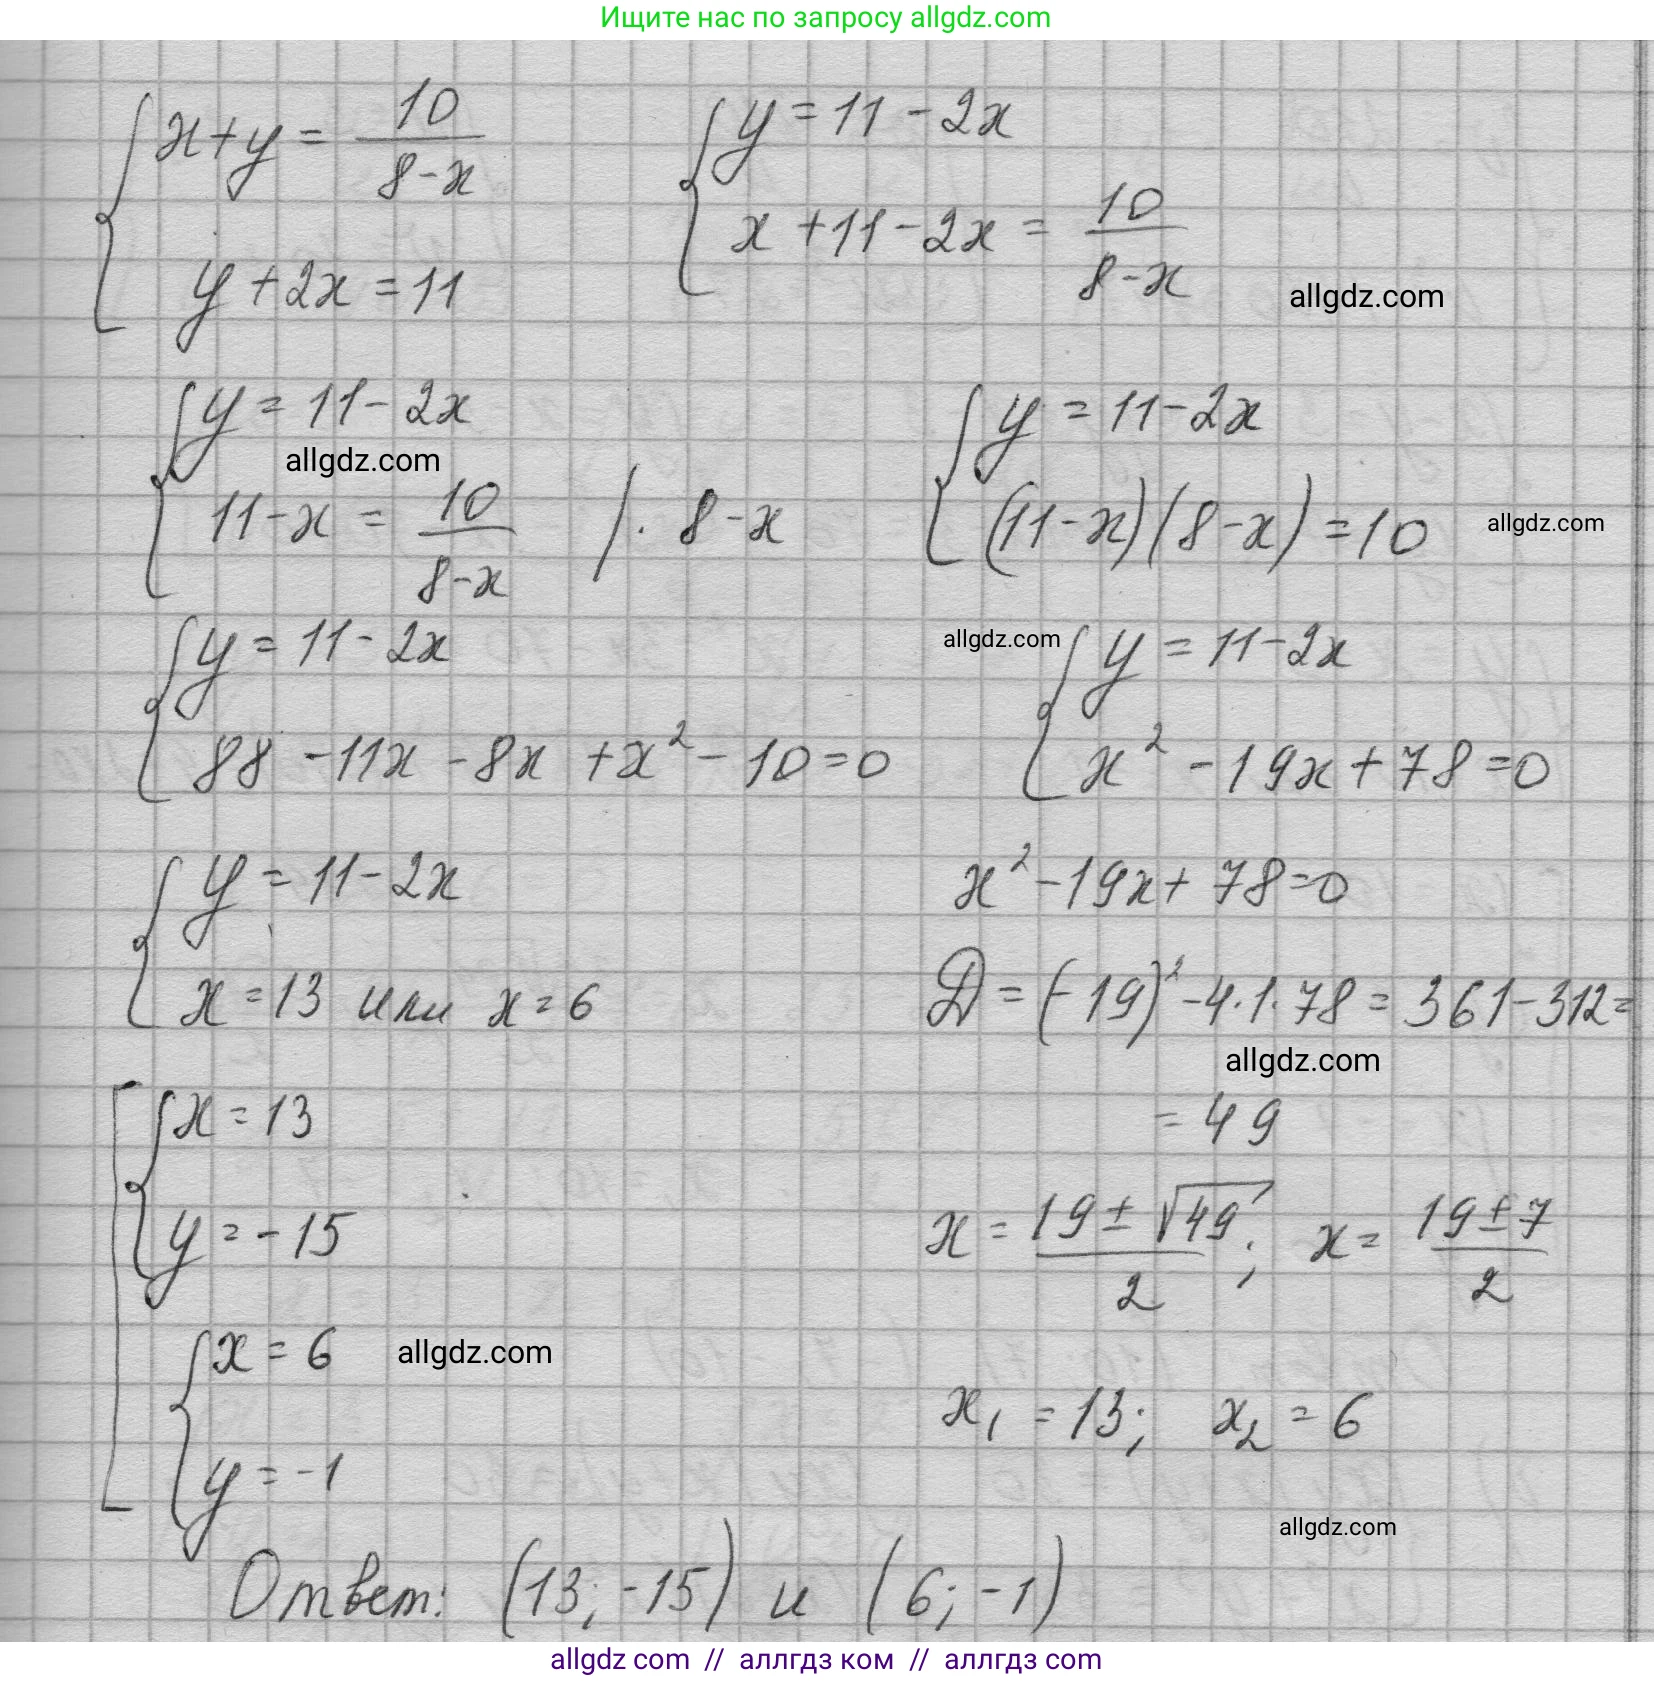 Ищите нас по запросу allgdz.com
{ x+y = 10/(8-x)
y+2x=11
{ y=11-2x
x+11-2x = 10/(8-x)
allgdz.com
{ y=11-2x
allgdz.com
11-x = 10/(8-x) /· 8-x
{ y=11-2x
(11-x)(8-x)=10
allgdz.com
{ y=11-2x
88-11x-8x+x²-10=0
allgdz.com
{ y=11-2x
x²-19x+78=0
{ y=11-2x
x=13 или x=6
x²-19x+78=0
D=(-19)²-4·1·78=361-312=
allgdz.com
=49
[ { x=13
y=-15
{ x=6
y=-1
allgdz.com
x = (19±√49)/2; x = (19±7)/2
x₁=13; x₂=6
allgdz.com
Ответ: (13;-15) и (6;-1)
allgdz com // аллгдз ком // аллгдз com